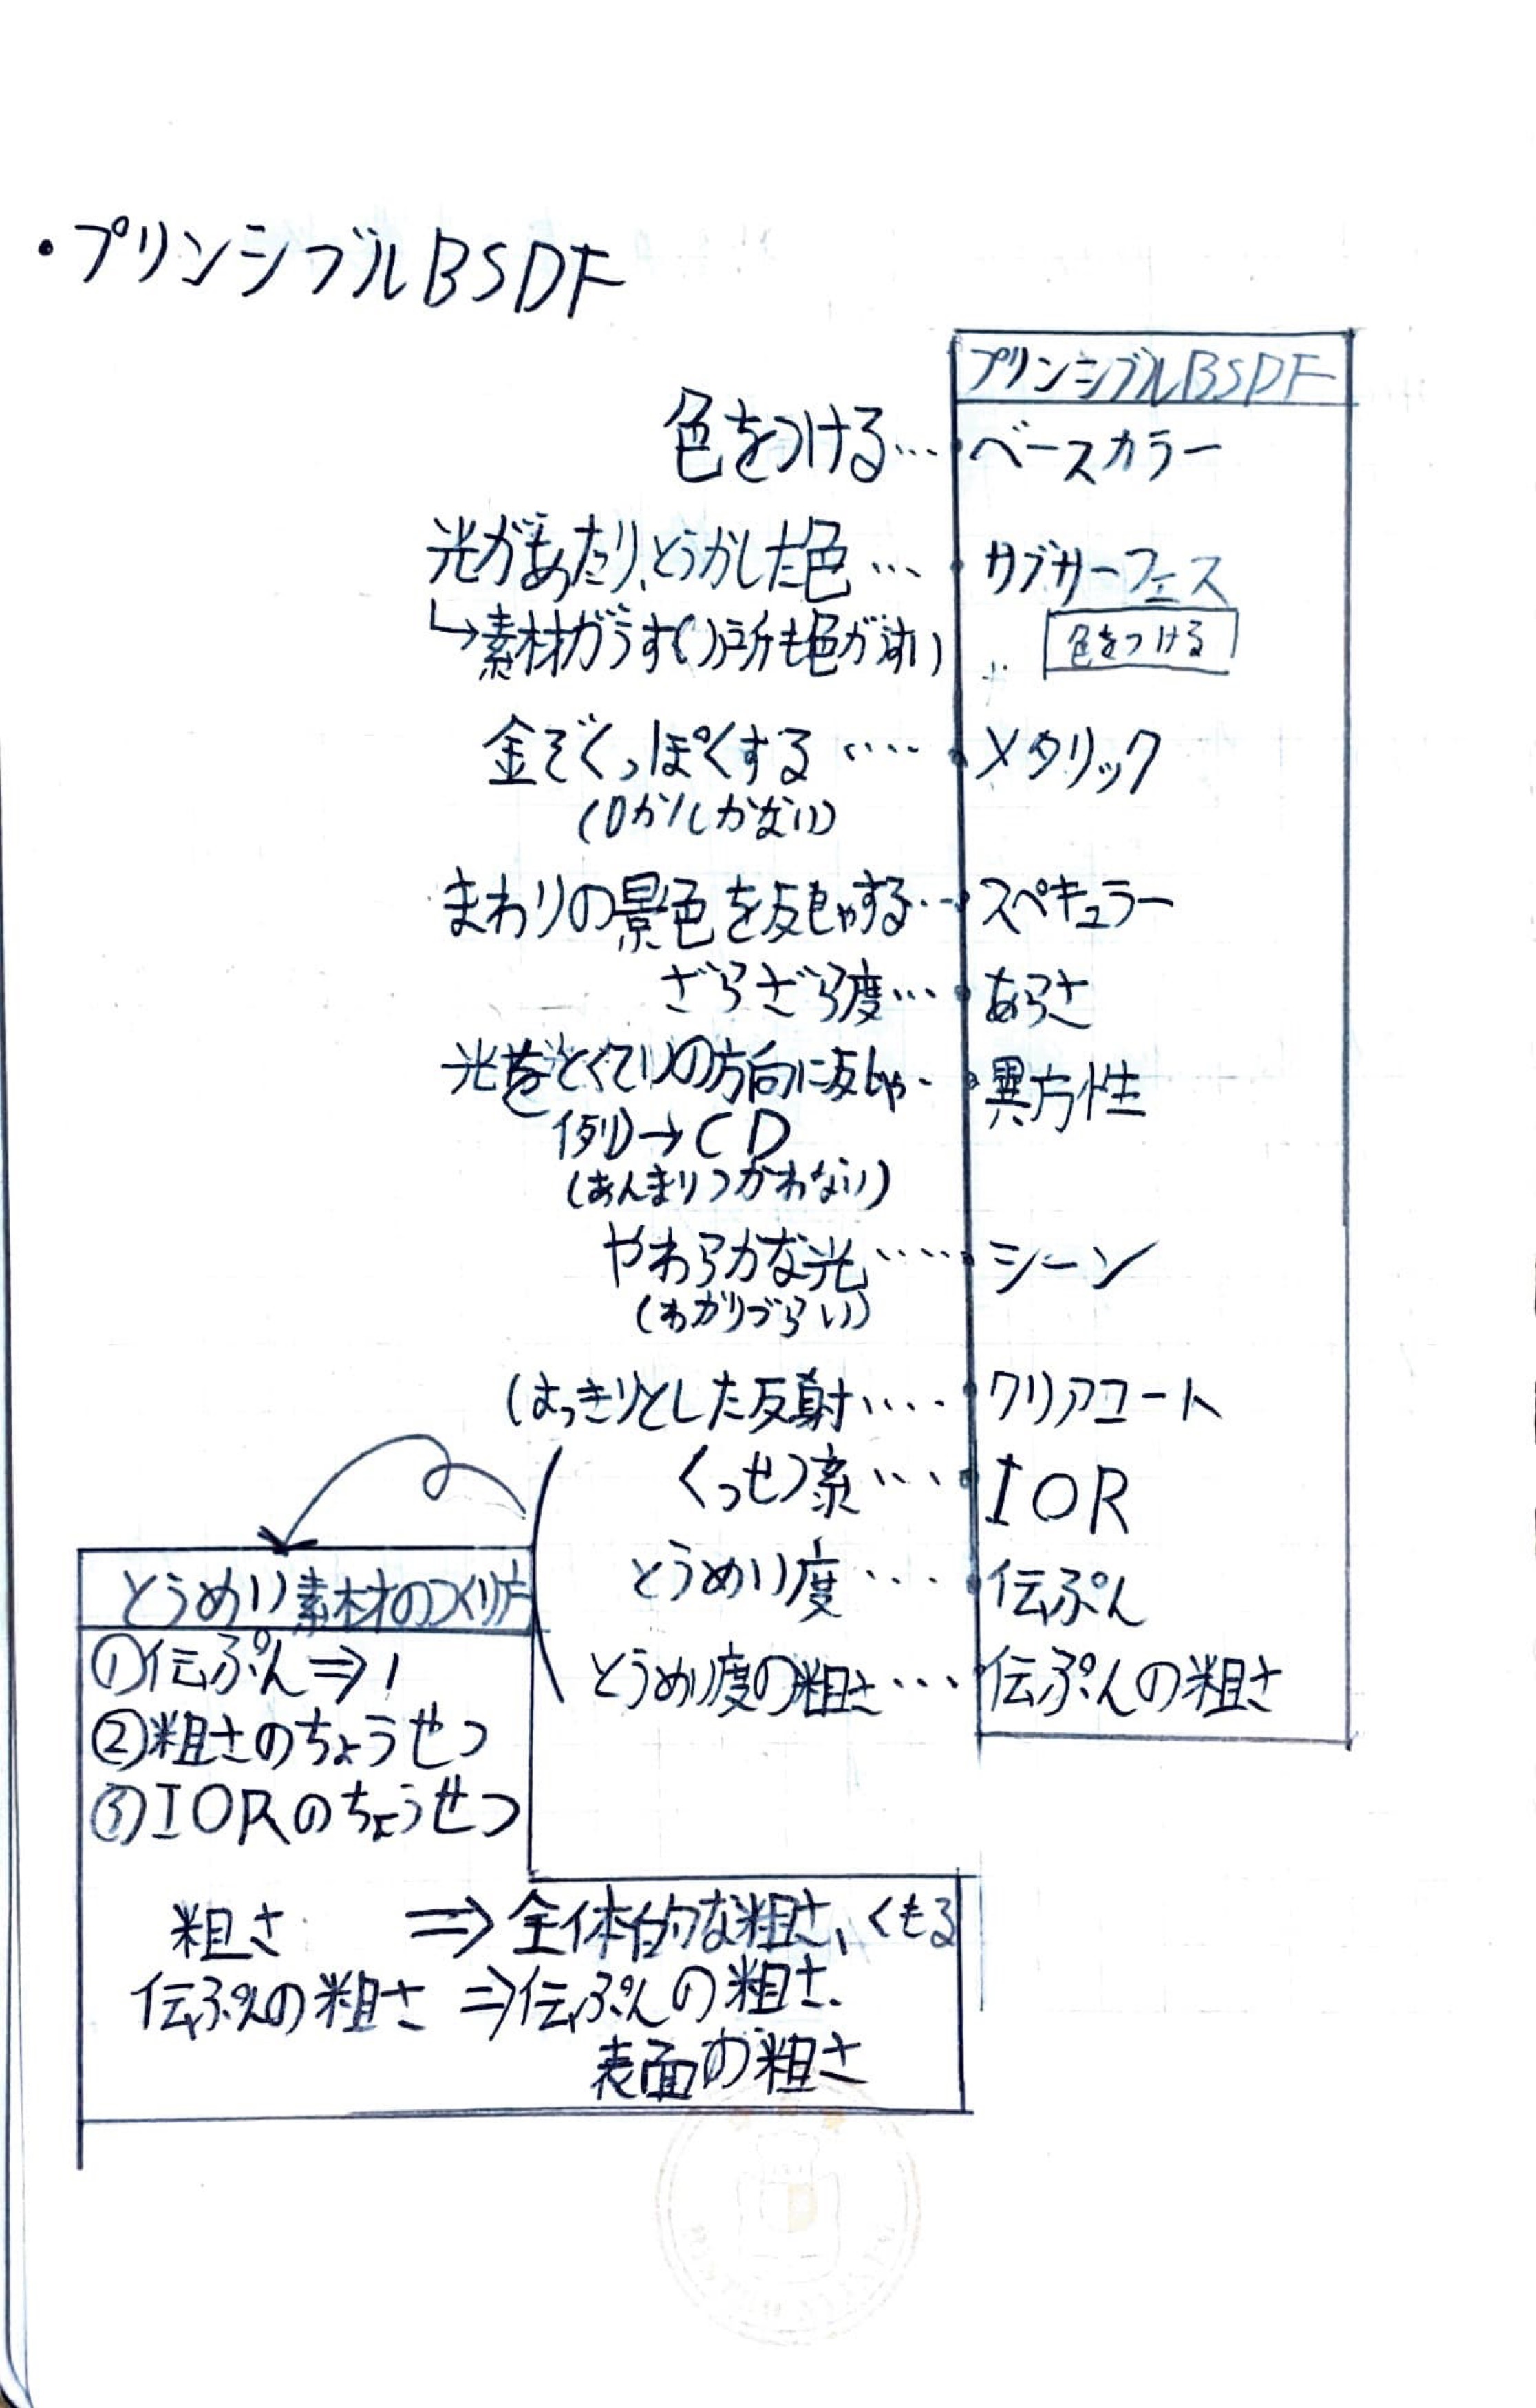 ・プリンシブルBSDF
プリンシブルBSDF
色をつける… ベースカラー
光があたり、とうかした色… サブサーフェス
↳素材がうすい所も色がうすい 色をつける
金ぞくっぽくする…… メタリック
(0か1しかない)
まわりの景色を反しゃする… スペキュラー
ざらざら度… あらさ
光をとくていの方向に反しゃ… 異方性
例)→CD
(あんまりつかわない)
やわらかな光…… シーン
(わかりづらい)
はっきりとした反射…… クリアコート
くっせつ率…… IOR
とうめい度…… 伝ぷん
とうめい度の粗さ… 伝ぷんの粗さ
とうめい素材のつくり方
①伝ぷん⇒1
②粗さのちょうせつ
③IORのちょうせつ
粗さ ⇒全体的な粗さ、くもる
伝ぷんの粗さ ⇒伝ぷんの粗さ、
表面の粗さ